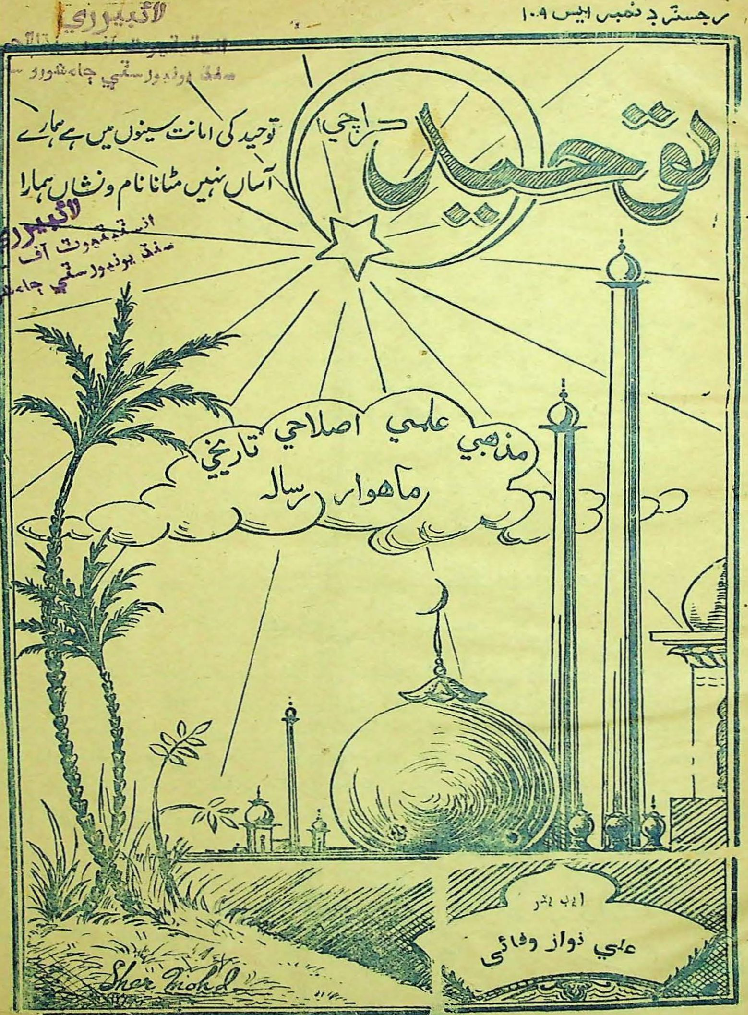 رجسٽرڊ نمبر ايس ١٠٩
لائبيرري
سنڌ يونيورسٽي ڄامشورو
توحيد
ڪراچي
توحید کی امانت سینوں میں ہے ہمارے
آساں نہیں مٹانا نام و نشاں ہمارا
لائبيرري
انسٽيٽيوٽ آف
سنڌ يونيورسٽي ڄامشورو
مذهبي علمي اصلاحي تاريخي
ماهوار رسالہ
ايڊيٽر
علي نواز وفائي
Sher Mohd